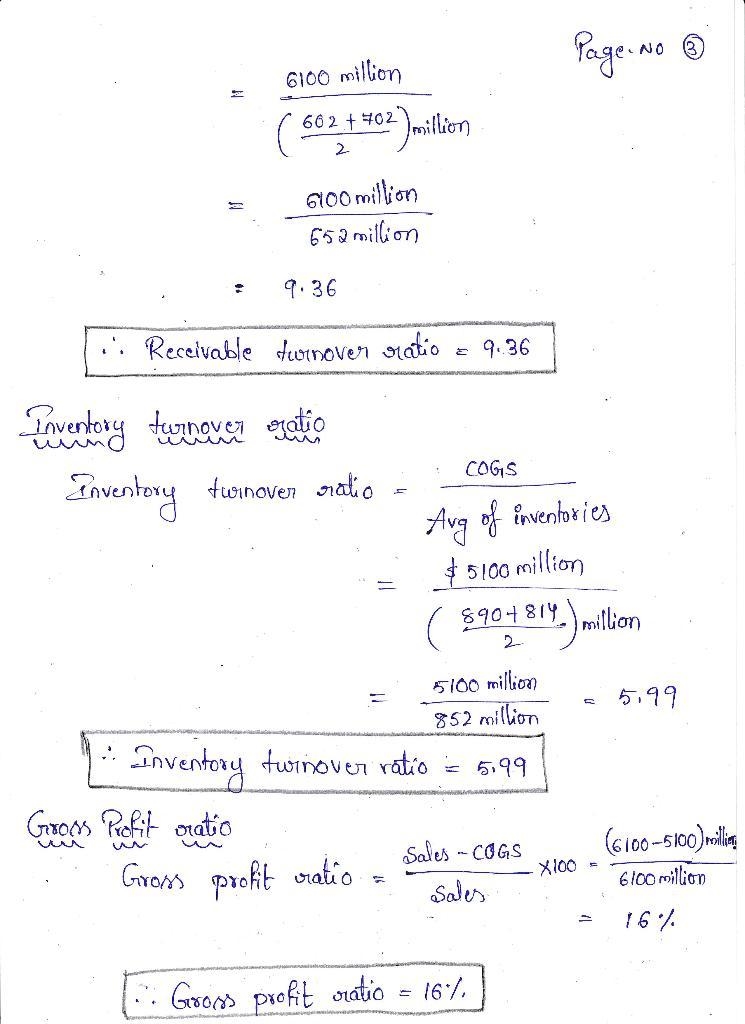 Page. No ③
= 6100 million
( 602 + 702 / 2 ) million
= 6100 million
652 million
= 9.36
∴ Receivable turnover ratio = 9.36
Inventory turnover ratio
Inventory turnover ratio = COGS
Avg of inventories
= $ 5100 million
( 890 + 814 / 2 ) million
= 5100 million = 5.99
852 million
∴ Inventory turnover ratio = 5.99
Gross Profit ratio
Gross profit ratio = Sales - COGS / Sales × 100 = (6100 - 5100) million / 6100 million
= 16 %
∴ Gross profit ratio = 16%.